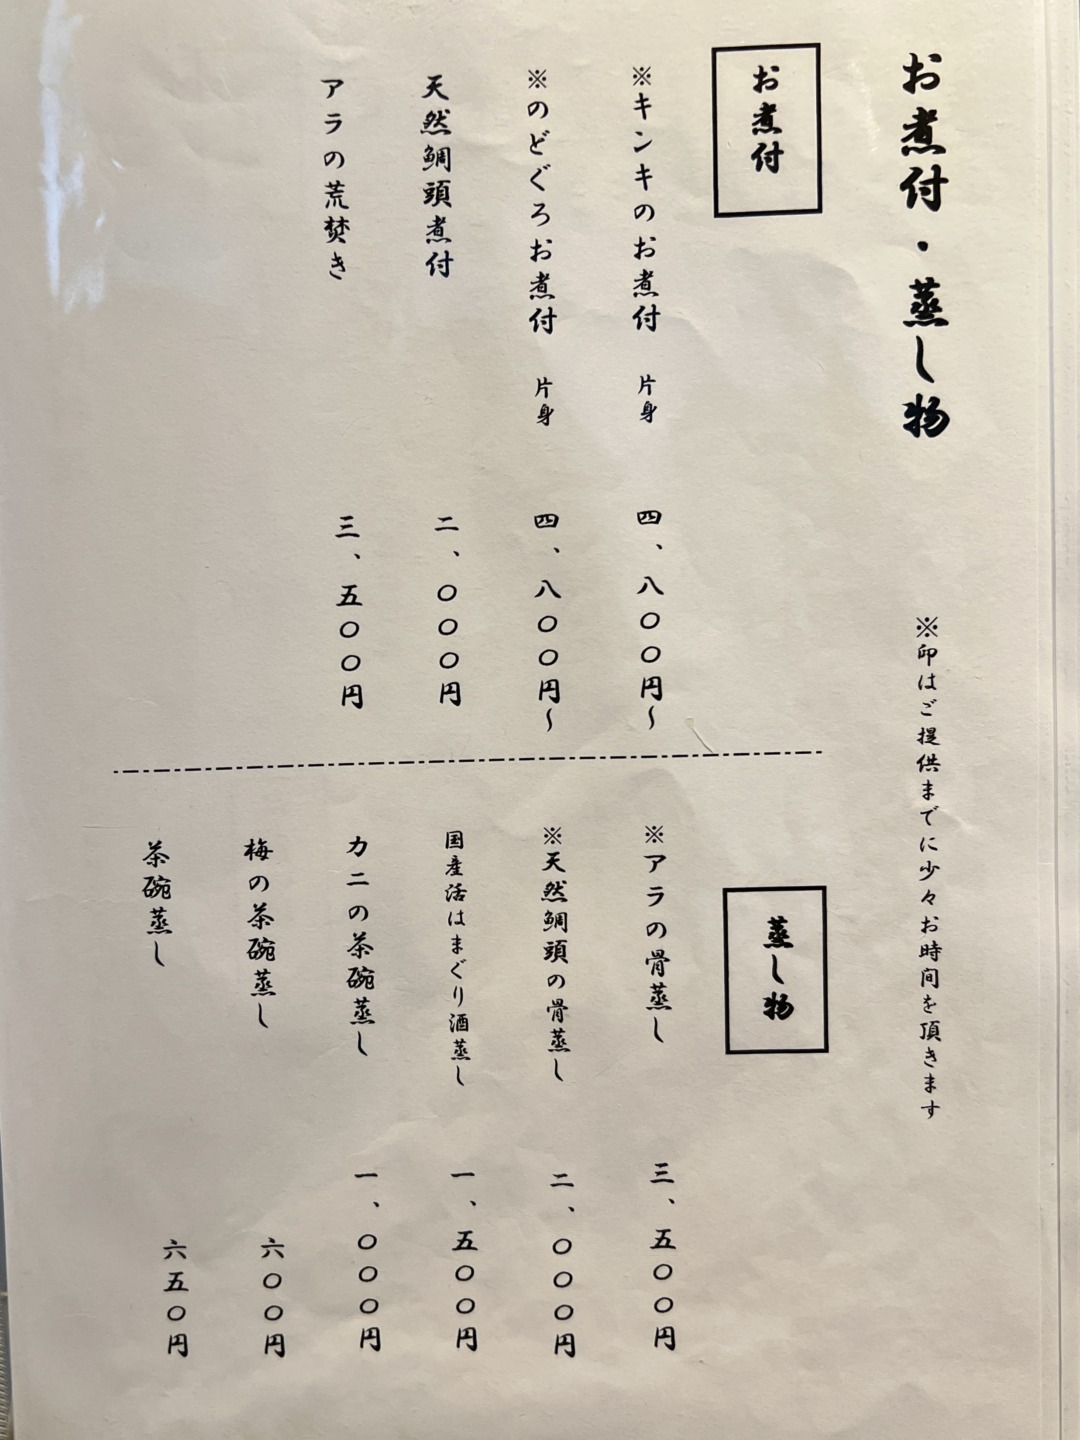 お煮付・蒸し物
※印はご提供までに少々お時間を頂きます
お煮付
※キンキのお煮付 片身 四、八〇〇円〜
※のどぐろお煮付 片身 四、八〇〇円〜
天然鯛頭煮付 二、〇〇〇円
アラの荒焚き 三、五〇〇円
蒸し物
※アラの骨蒸し 三、五〇〇円
※天然鯛頭の骨蒸し 二、〇〇〇円
国産活はまぐり酒蒸し 一、五〇〇円
カニの茶碗蒸し 一、〇〇〇円
梅の茶碗蒸し 六〇〇円
茶碗蒸し 六五〇円